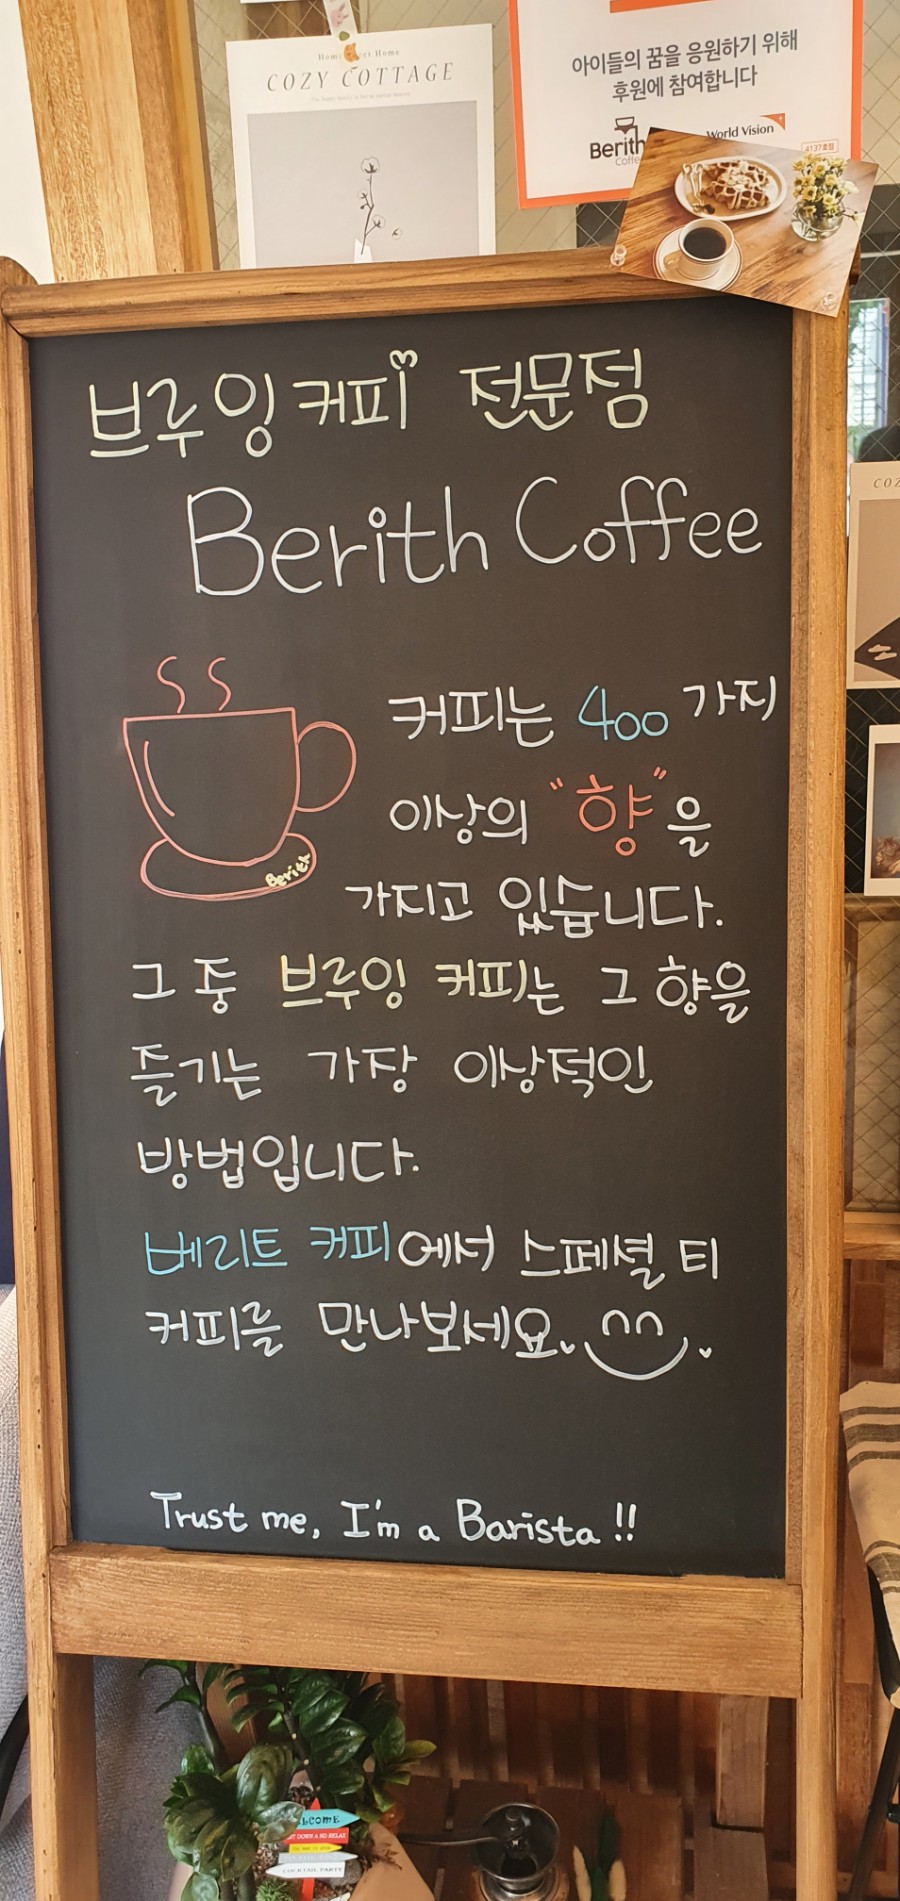 Home Sweet Home
COZY COTTAGE
아이들의 꿈을 응원하기 위해
후원에 참여합니다
Berith
Coffee
World Vision
4137호점
브루잉 커피 전문점
Berith Coffee
커피는 400 가지
이상의 "향"을
Berith
가지고 있습니다.
그 중 브루잉 커피는 그 향을
즐기는 가장 이상적인
방법입니다.
베리트 커피에서 스페셜 티
커피를 만나보세요.
Trust me, I'm a Barista !!
COZ
LCOME
COCKTAIL PARTY